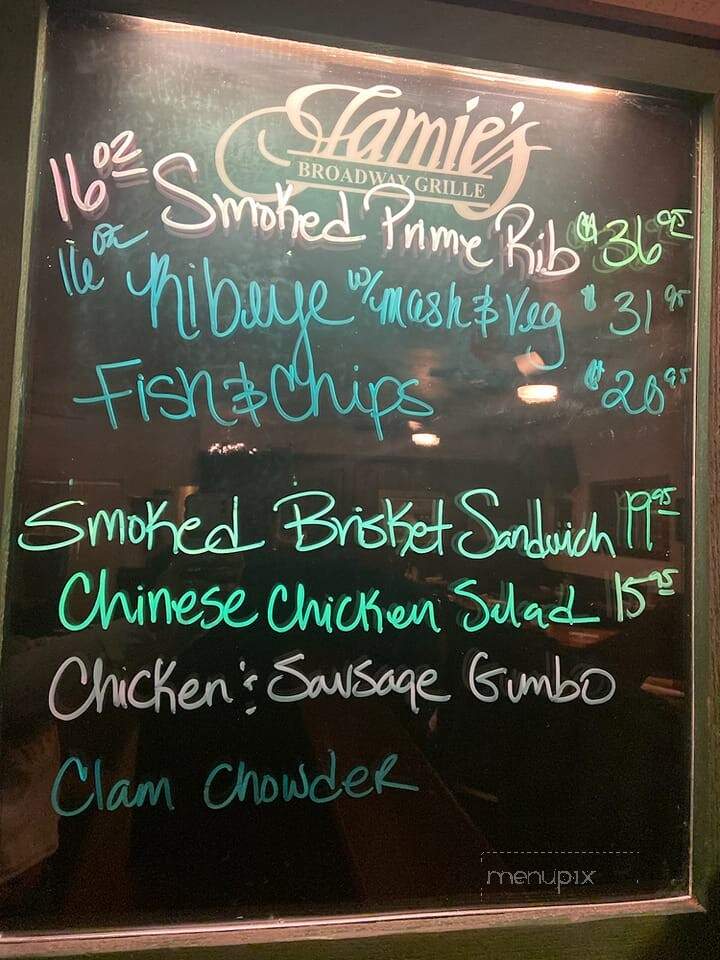 Jamie's
BROADWAY GRILLE
16 oz Smoked Prime Rib $36 95
16 oz Ribeye w/ mash & Veg $31 95
Fish & Chips $20 95
Smoked Brisket Sandwich 19 95
Chinese Chicken Salad 15 95
Chicken & Sausage Gumbo
Clam Chowder
menupix